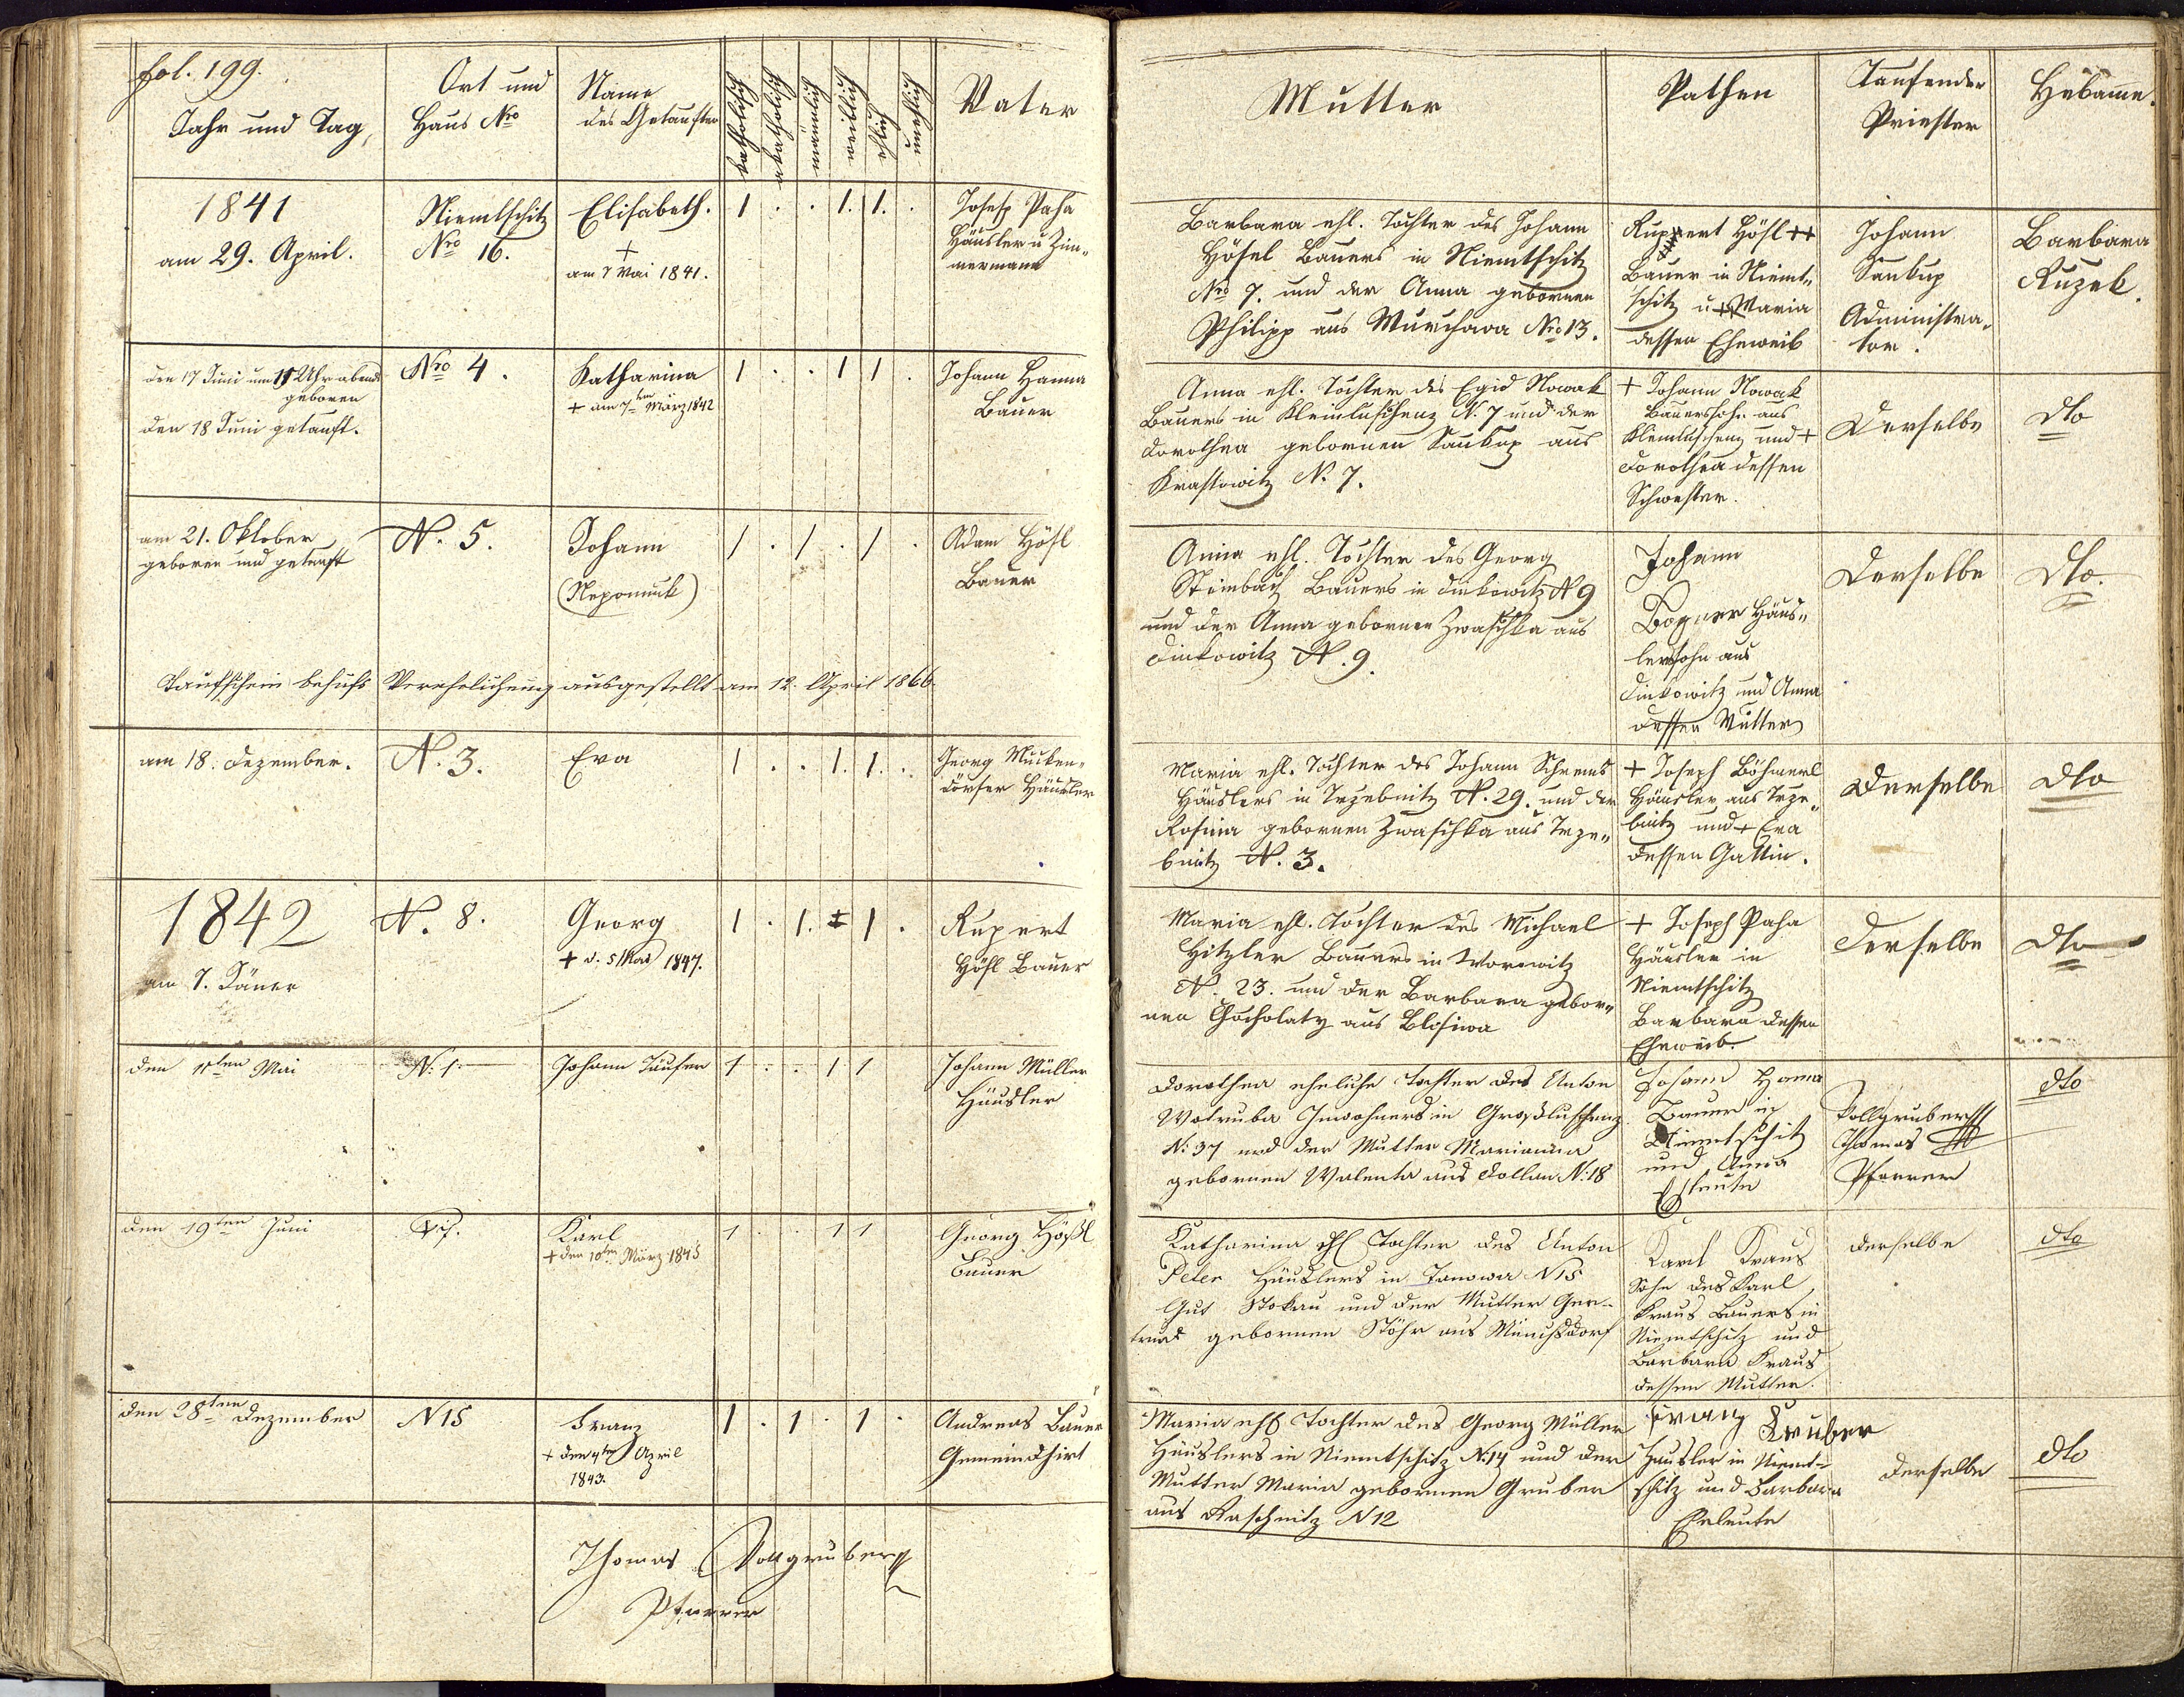 fol. 199.
Jahr und Tag,
Ort und
Haus Nro
Name
des Getauften
katholisch
akatholisch
männlich
weiblich
ehlich
unehlich
Vater
Mutter
Pathen
Taufender
Priester
Hebamme.
1841
am 29. April.
Niemtschitz
Nro 16.
Elisabeth.
+
am 7 Mai 1841.
1 . . 1. 1. .
Josef Paha
Häusler u Zim-
mermann
Barbara ehl. Tochter des Johann
Hösel Bauers in Niemtschitz
Nro 7. und der Anna gebornen
Philipp aus Wurchava Nro 13.
Ruppert Hösl ++
Bauer in Niemt-
schitz u + Maria
dessen Eheweib
Johann
Saukup
Administra-
tor.
Barbara
Ruzek.
den 17 Juni um 11 Uhr abends
geboren
den 18 Juni getauft.
Nro 4.
Katharina
+ am 7ten März 1842
1 . . 1 1 .
Johann Hanna
Bauer
Anna ehl. Tochter des Egid Nowak
Bauers in Kleinluschenz N. 7 und der
Dorothea gebornen Saukup aus
Krastowitz N. 7.
+ Johann Nowak
Bauerssohn aus
Kleinluschenz und +
Dorothea dessen
Schwester.
Derselbe
dto
am 21. Oktober
geboren und getauft
N. 5.
Johann
(Nepomuk)
1 . 1 . 1 .
Adam Hösl
Bauer
Anna ehl. Tochter des Georg
Steinbach Bauers in Dinkowitz N 9
und der Anna gebornen Zwaschka aus
Dinkowitz N. 9.
Johann
Bogner Häus-
lerssohn aus
Dinkowitz und Anna
dessen Mutter
Derselbe
dto.
Taufschein behufs Verehelichung ausgestellt am 12. April 1866
am 18. Dezember.
N. 3.
Eva
1 . . 1. 1. .
Georg Mucken-
dörfer Häusler
Maria ehl. Tochter des Johann Schrems
Häuslers in Trzebnitz N. 29. und der
Rosina gebornen Zwaschka aus Trze-
bnitz N. 3.
+ Joseph Böhmerl
Häusler aus Trze-
bnitz und + Eva
dessen Gattin.
Derselbe
dto
1842
am 7. Jäner
N. 8.
Georg
+ d. 5 Mai 1847.
1 . 1. 1 .
Rupert
Hösl Bauer
Maria ehl. Tochter des Michael
Hitzler Bauers in Worowitz
N. 23. und der Barbara gebor-
nen Chocholaty aus Blosiwa
+ Joseph Paha
Häusler in
Niemtschitz
Barbara dessen
Eheweib.
Derselbe
dto
den 11ten Mai
N. 1
Johann Täufer
1 . . 1 1
Johann Müller
Häusler
Dorothea eheliche Tochter des Anton
Wotruba Inwohners in Großluschenz
N. 37 und der Mutter Marianna
gebornen Walenta aus Dollan N. 18
Johann Hana
Bauer in
Niemtschitz
und Anna
Eheleute
Vollgruber
Thomas
Pfarrer
dto
den 19ten Juni
N 7.
Karl
+ den 10ten März 1845
1 . . 1 1
Georg Hößl
Bauer
Katharina ehl Tochter des Anton
Peter Häuslers in Tanowa N 15
Gut Stokau und der Mutter Ger-
trud gebornen Stöhr aus Münchsdorf
Karl Kraus
Sohn des Karl
Kraus Bauers in
Niemtschitz und
Barbara Kraus
dessen Mutter.
derselbe
dto
den 28ten Dezember
N 15
Franz
+ den 4ten April
1843.
1 . 1 . 1 .
Andreas Bauer
Gemeindhirt
Maria ehl Tochter des Georg Müller
Häuslers in Niemtschitz N. 14 und der
Mutter Maria gebornen Gruber
aus Raschnitz N 12
Franz Gruber
Häusler in Niemt-
schitz und Barbara
Eheleute
derselbe
dto
Thomas Vollgruber
Pfarrer